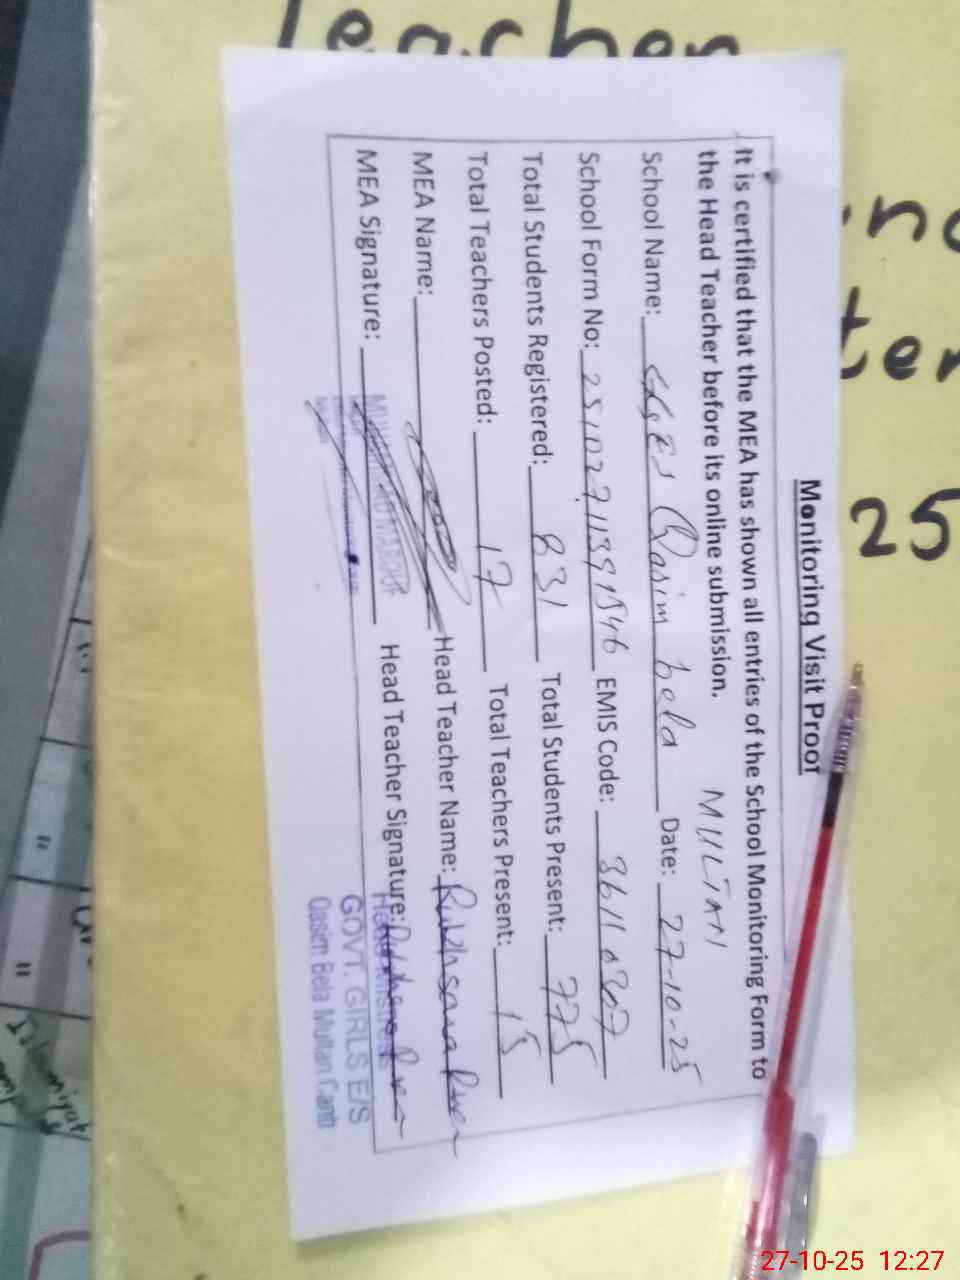 Teacher
25
Monitoring Visit Proof
It is certified that the MEA has shown all entries of the School Monitoring Form to
the Head Teacher before its online submission. MULTAN
School Name: GGES Qasim bela Date: 27-10-25
School Form No: EMIS Code:
Total Students Registered: 831 Total Students Present: 775
Total Teachers Posted: 17 Total Teachers Present: 15
MEA Name: Head Teacher Name: Rukhsana
MEA Signature: Head Teacher Signature: Rukhsana
Head Mistress
GOVT. GIRLS E/S
Qasim Bela Multan Cantt
Islamiyat
27-10-25 12:27